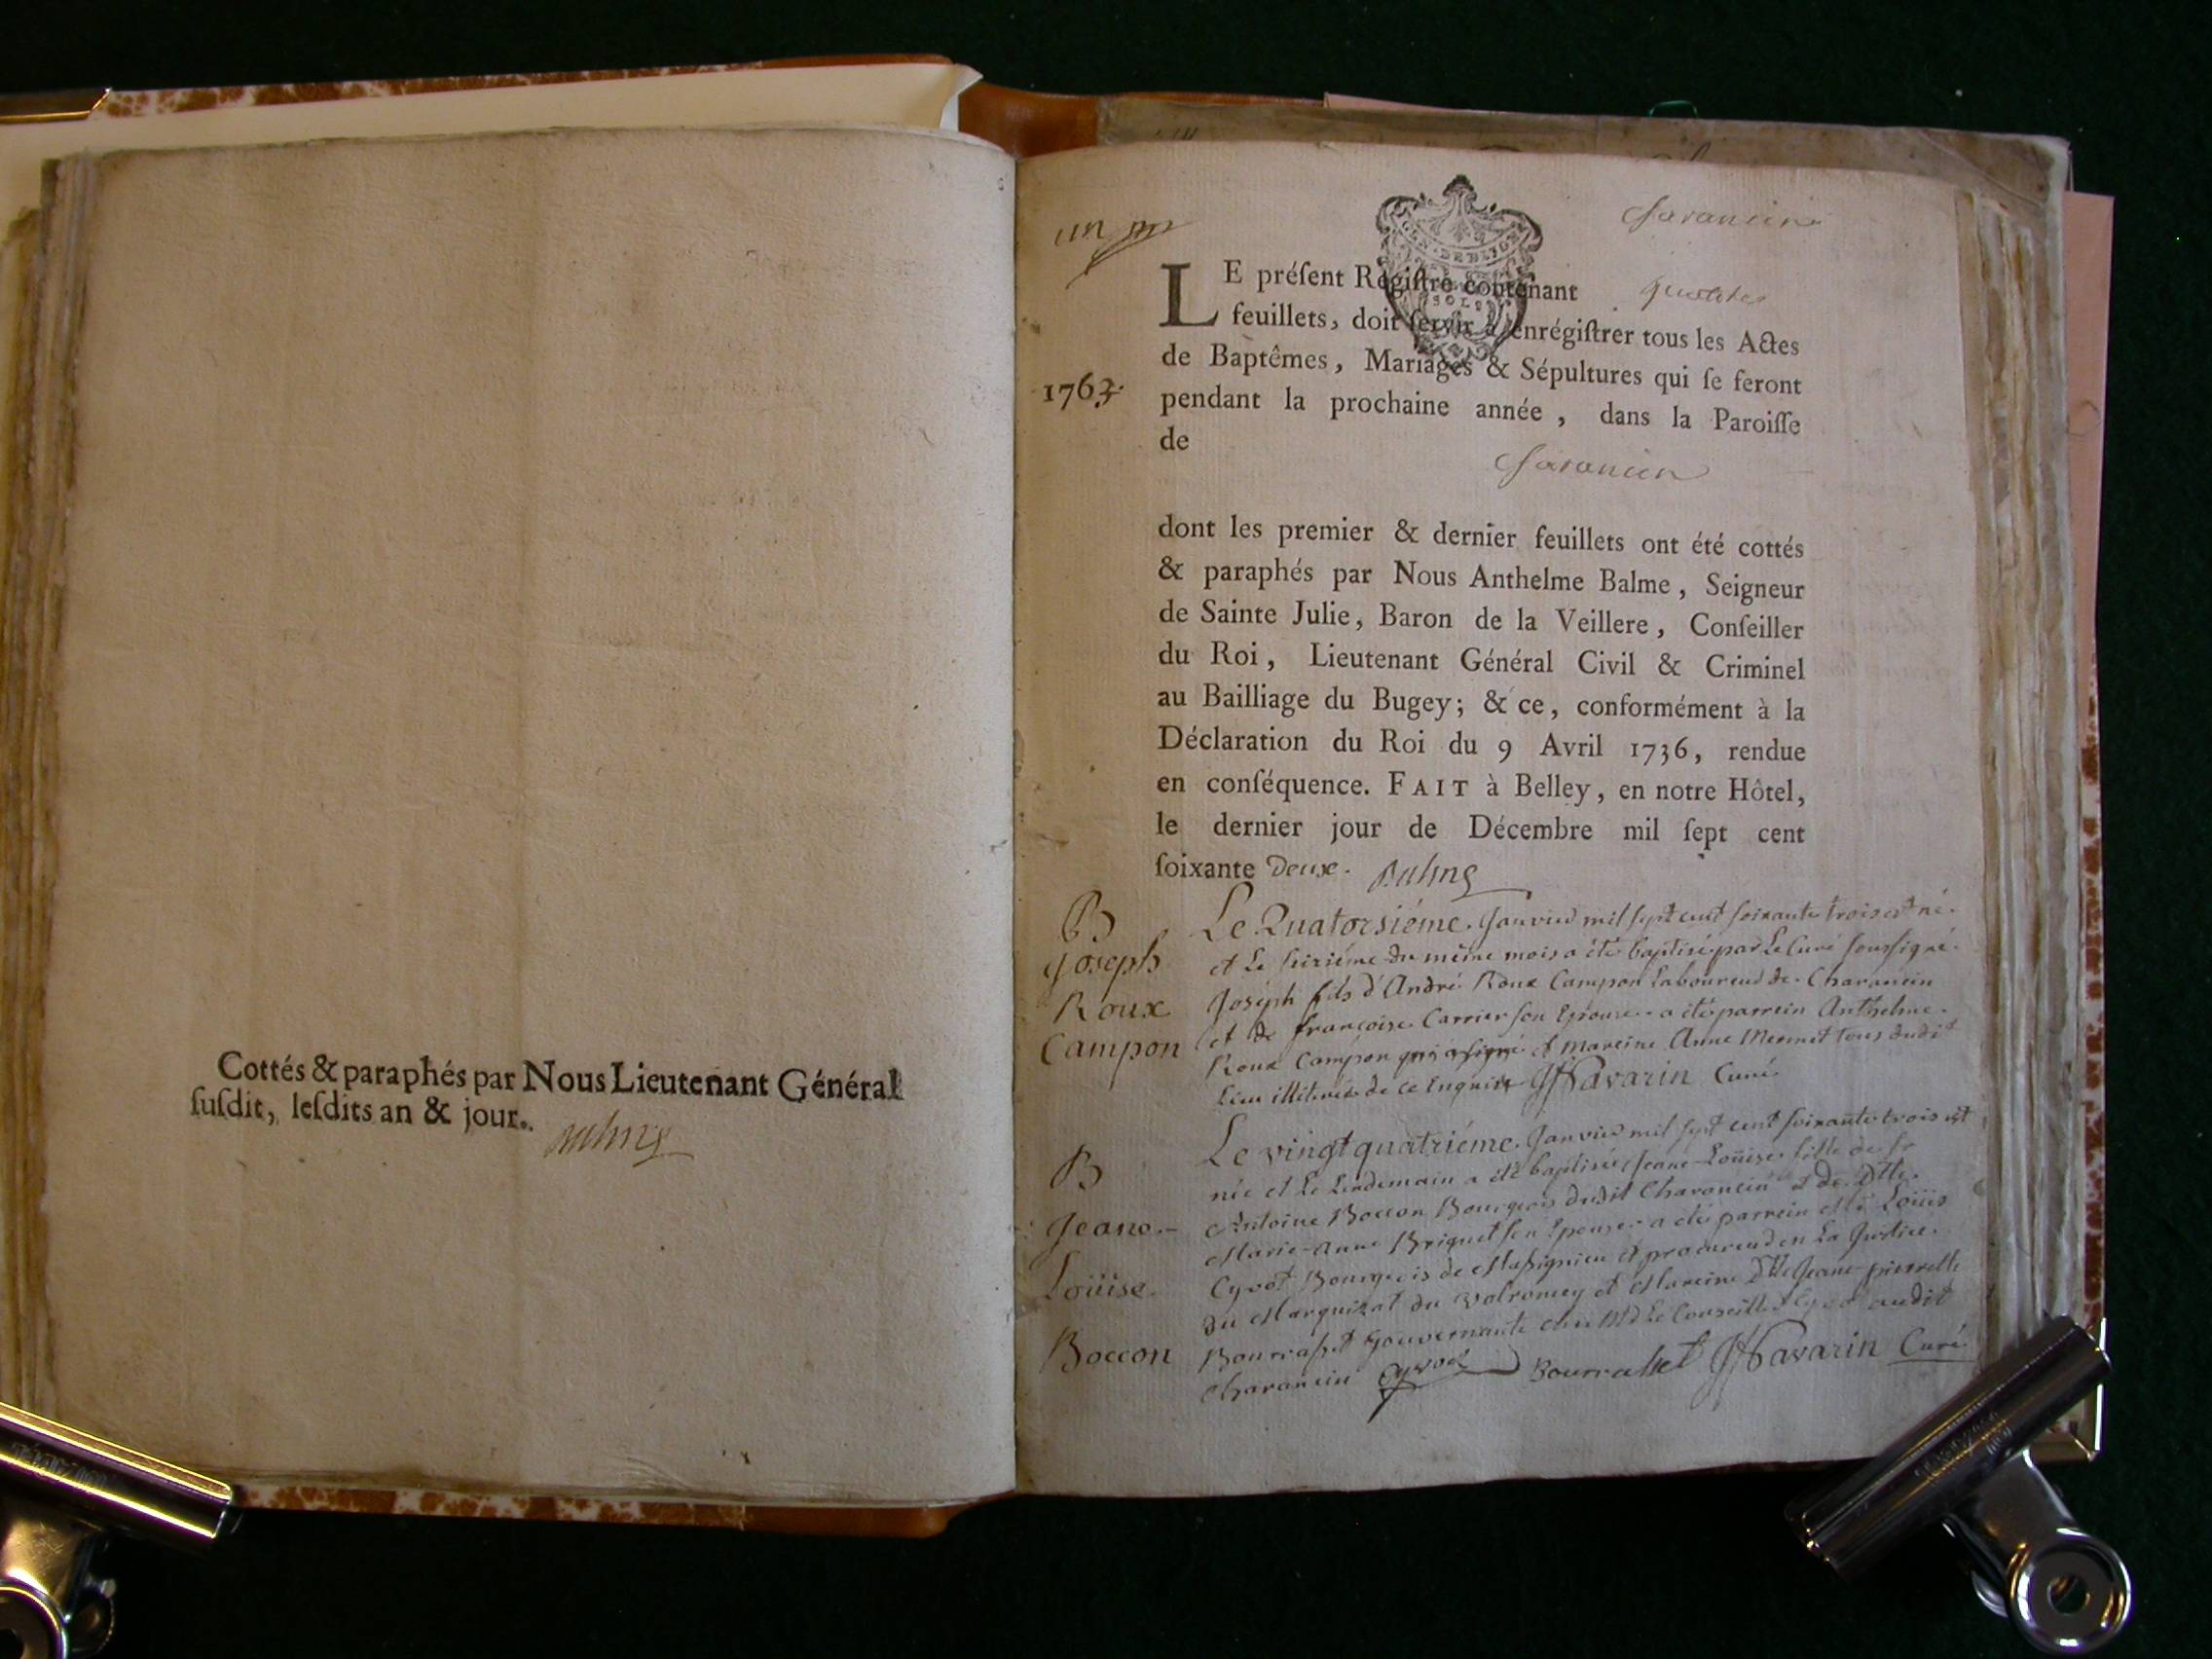 Cottés & paraphés par Nous Lieutenant Général
ſuſdit, leſdits an & jour.
un
Charancin
LE préſent Régiſtre contenant quatre
feuillets, doit ſervir à enrégiſtrer tous les Actes
de Baptêmes, Mariages & Sépultures qui ſe feront
1763.
pendant la prochaine année, dans la Paroiſſe
de
Charancin
dont les premier & dernier feuillets ont été cottés
& paraphés par Nous Anthelme Balme, Seigneur
de Sainte Julie, Baron de la Veillere, Conſeiller
du Roi, Lieutenant Général Civil & Criminel
au Bailliage du Bugey; & ce, conformément à la
Déclaration du Roi du 9 Avril 1736, rendue
en conſéquence. FAIT à Belley, en notre Hôtel,
le dernier jour de Décembre mil ſept cent
ſoixante Deux. Balme
B
Joseph
Roux
Campon
Le Quatorsiéme Janvier mil sept cent soixante trois est né
et Le seizième du même mois a été baptisé par Le Curé soussigné
Joseph fils d'André Roux Campon Laboureur de Charancin
et de françoise Carrier son Epouse a été parrein Anthelme
Roux Campon qui a signé et mareine Anne Mermet tous dudit
Lieu illiterés de ce Enquis JfSavarin Curé
B
Jeane-
Loüise
Boccon
Le vingt quatriéme Janvier mil sept cent soixante trois est
née et Le Lendemain a été baptisée Jeane-Loüise fille de sr
Antoine Boccon Bourgeois dudit Charancin et de Dlle
Marie-Anne Briquet son Epouse a été parrein Mr Loüis
Cyvot Bourgeois de Massignieu et procureur en La Justice
du Marquisat du Valromey et Mareine Dlle Jeane-pierrette
Bourrasset Gouvernante chez Mr Le Conseiller Cyvot audit
Charancin Cyvoct Bourrasset JfSavarin Curé